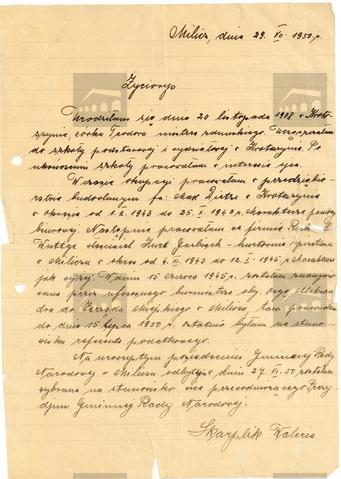 Milicz, dnia 29. VII. 1950 r.
Życiorys
Urodziłam się dnia 20 listopada 1908 w Kroto-
szynie, córka Teodora mistrza zduńskiego. Uczęszczałam
do szkoły podstawowej i wydziałowej w Krotoszynie. Po
ukończeniu szkoły pracowałam w interesie ojca.
W czasie okupacji pracowałam w przedsiębior-
stwie budowlanym fa: Dietze w Krotoszynie
w okresie od 1. 2. 1943 do 25. X. 1943 w charakterze pomocy
biurowej. Następnie pracowałam w firmie
właściciel Kurt
w Miliczu w okresie od 4. XI 1943 do 12. I. 1945 w charakterze
jak wyżej. W dniu 15 czerwca 1945 r. zostałam zaangażo-
wana przez pierwszego burmistrza ob.
do Zarządu Miejskiego w Miliczu, tam pracowałam
do dnia 15 lipca 1950 r. ostatnio byłam na stano-
wisku referenta podatkowego.
Na uroczystym posiedzeniu Gminnej Rady
Narodowej w Miliczu odbytym w dniu 27. VI. 50 zostałam
wybrana na stanowisko vice przewodniczącego Prezy-
djum Gminnej Rady Narodowej.
Skarplik